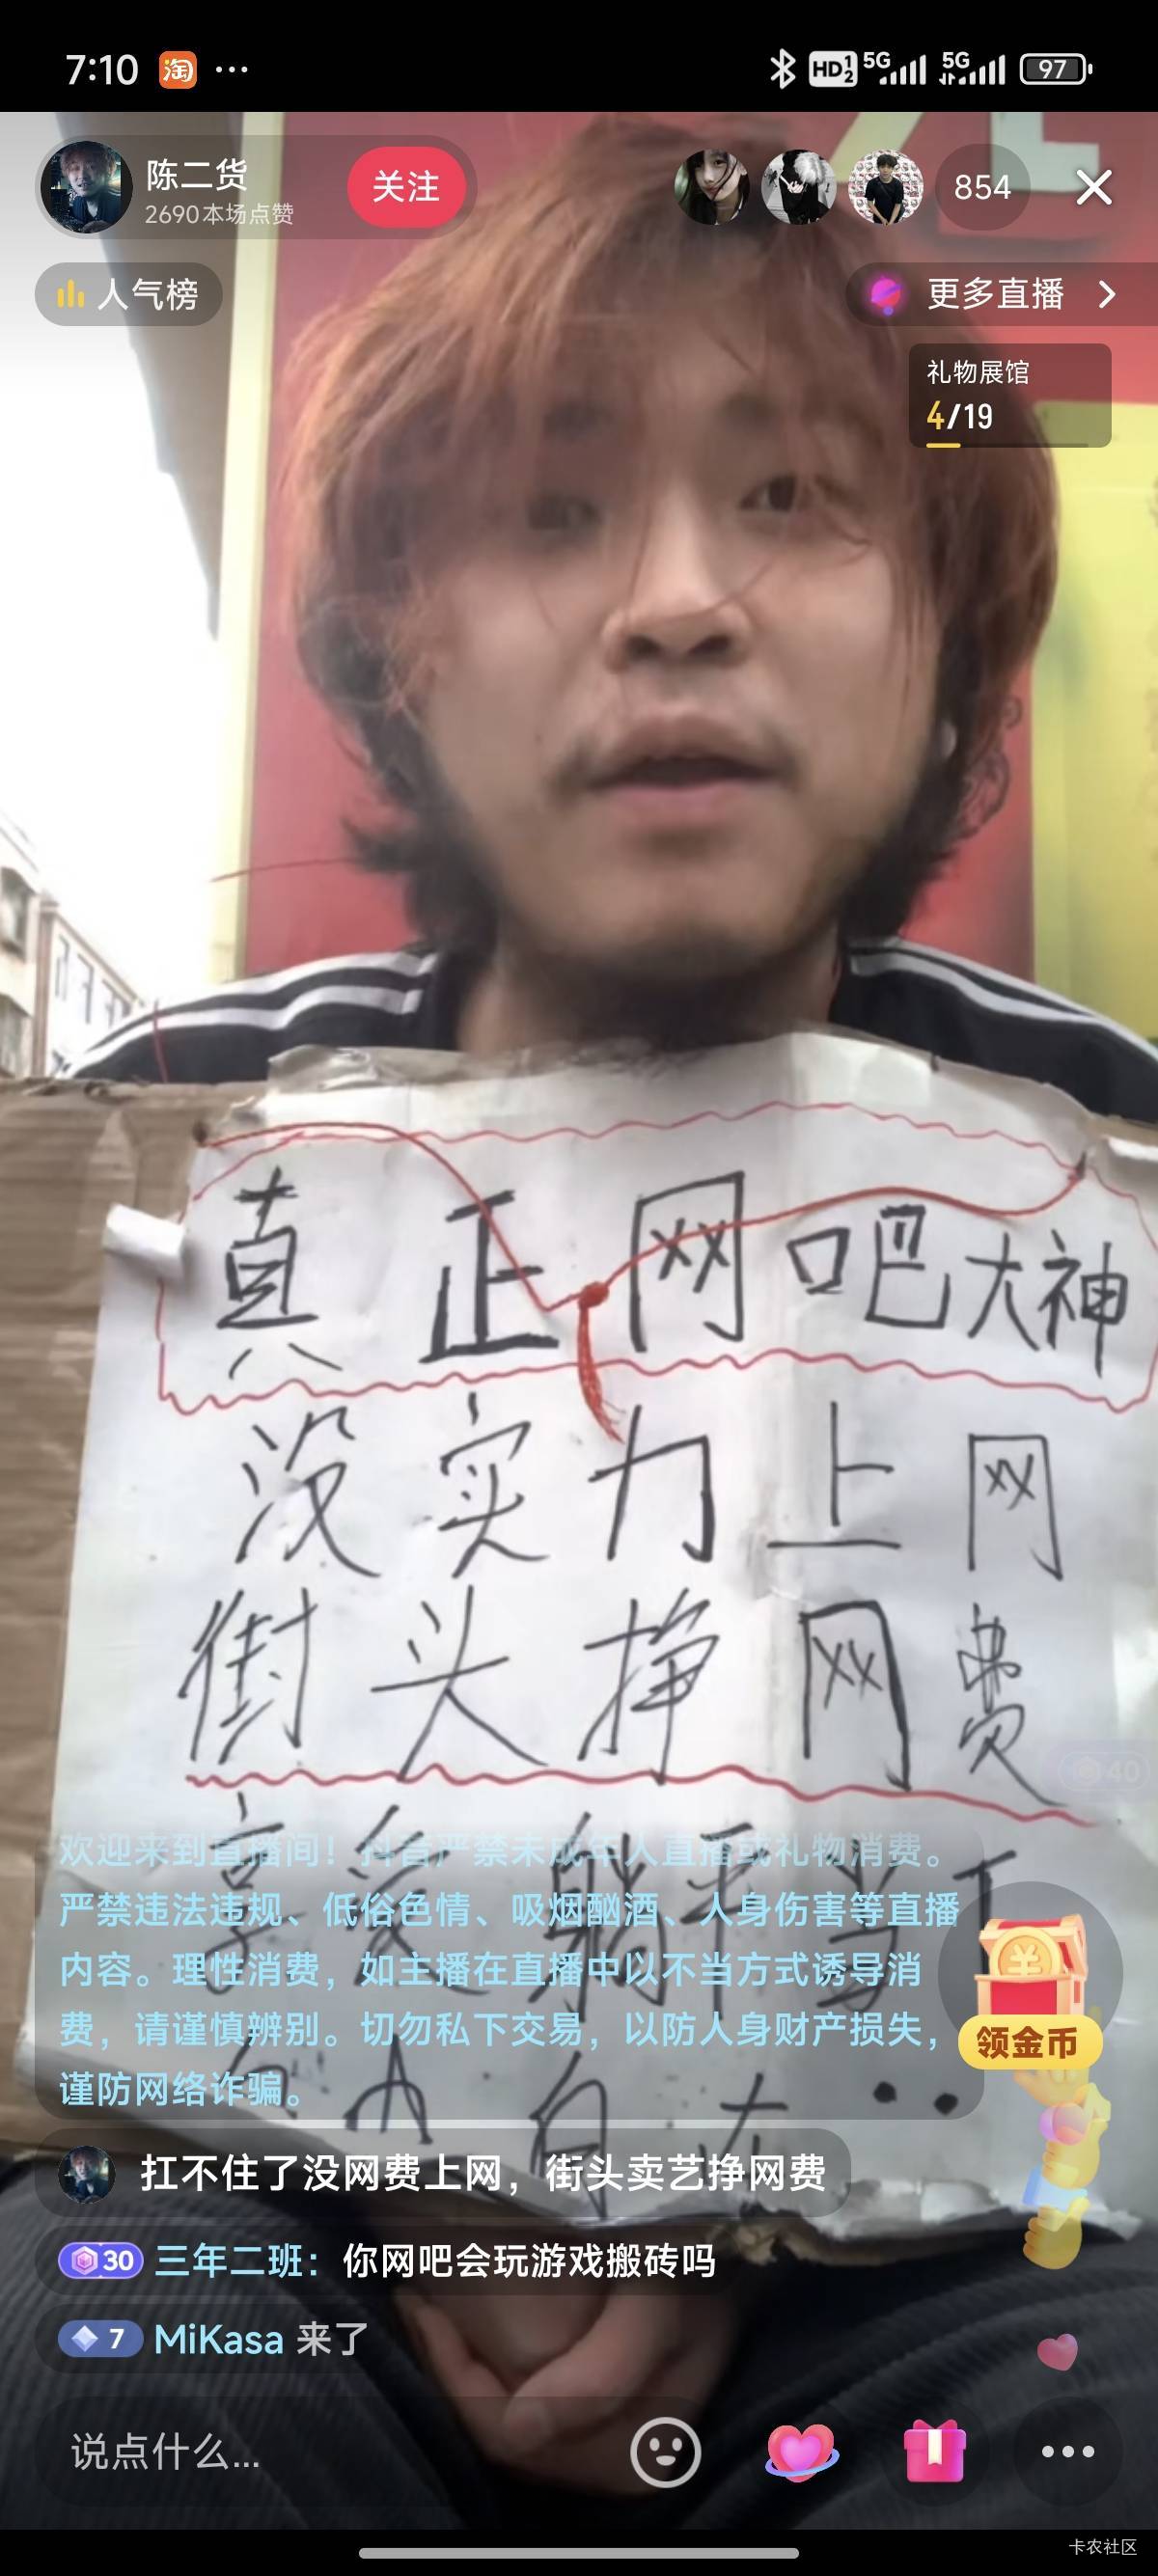 7:10 淘 ... HD 1 2 5G 5G 97
陈二货
2690本场点赞
关注
854
人气榜
更多直播
礼物展馆
4/19
真正网吧大神
没实力上网
街头挣网费
40
享受躺平当下
自由自在
欢迎来到直播间！抖音严禁未成年人直播或礼物消费。
严禁违法违规、低俗色情、吸烟酗酒、人身伤害等直播
内容。理性消费，如主播在直播中以不当方式诱导消
费，请谨慎辨别。切勿私下交易，以防人身财产损失，
谨防网络诈骗。
领金币
扛不住了没网费上网，街头卖艺挣网费
30 三年二班：你网吧会玩游戏搬砖吗
7 MiKasa 来了
说点什么...
卡农社区